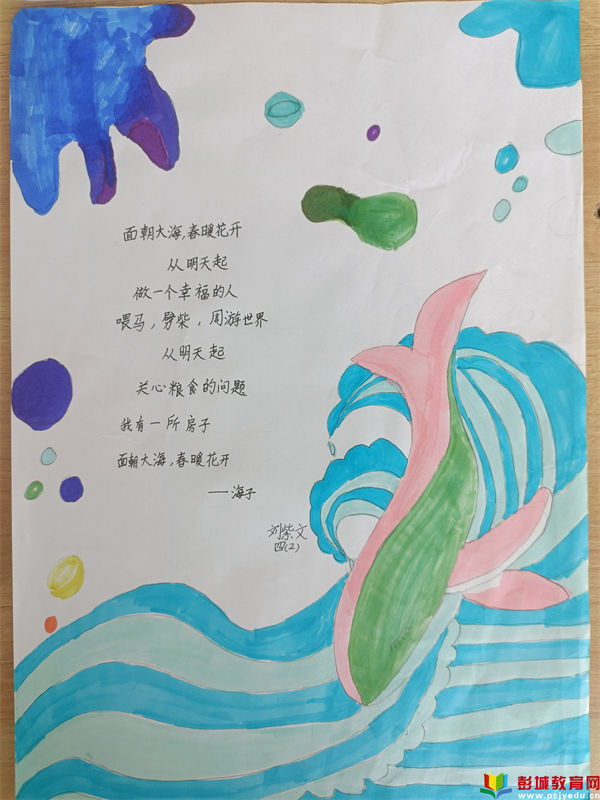 面朝大海,春暖花开
从明天起
做一个幸福的人
喂马,劈柴,周游世界
从明天起
关心粮食的问题
我有一所房子
面朝大海,春暖花开
——海子
刘紫文
四(2)
彭城教育网
www.pcjyedu.cn